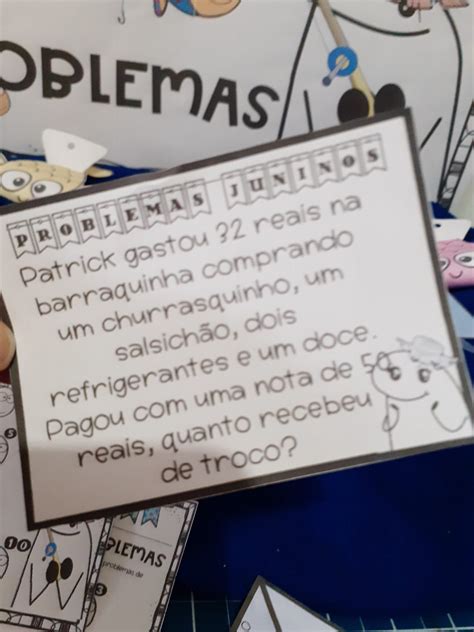 OBLEMAS
PROBLEMAS JUNINOS
Patrick gastou 32 reais na
barraquinha comprando
um churrasquinho, um
salsichão, dois
refrigerantes e um doce.
Pagou com uma nota de 50
reais, quanto recebeu
de troco?
10
OBLEMAS
problemas de